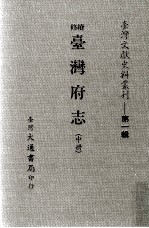 臺灣文獻史料叢刊——第一輯
續修
臺灣府志
(中冊)
臺灣大通書局印行